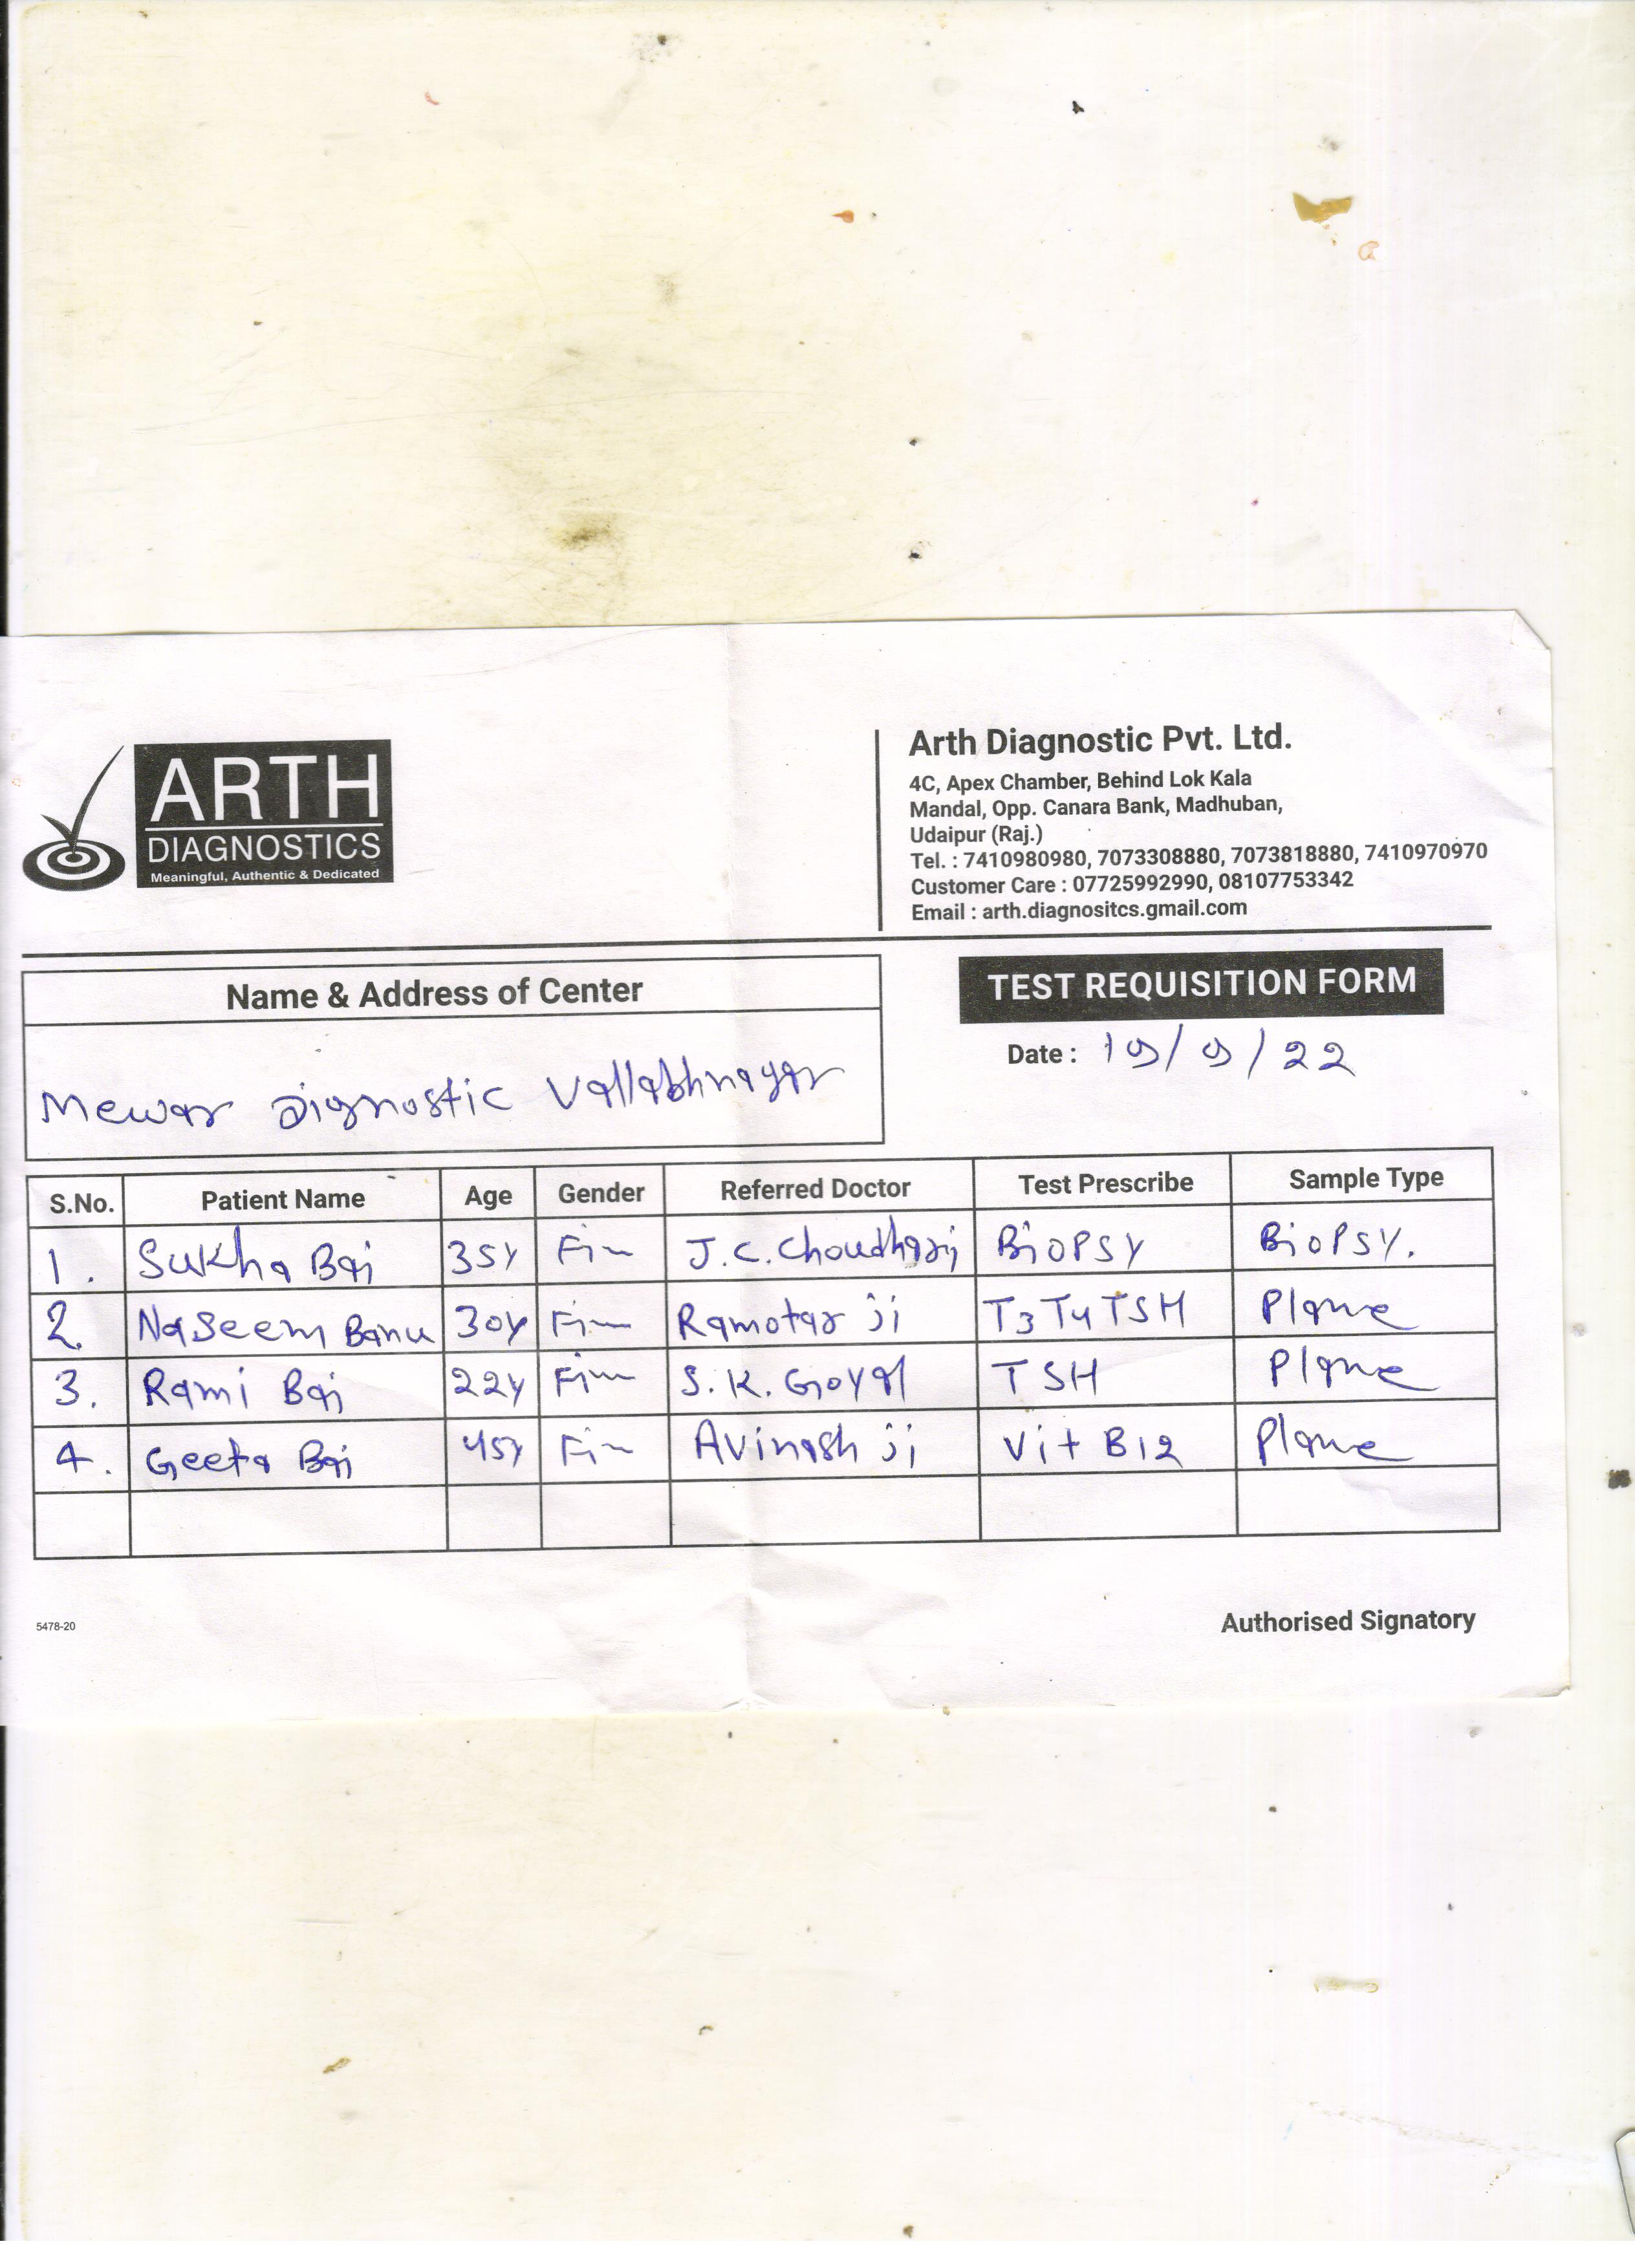 ARTH
DIAGNOSTICS
Meaningful, Authentic & Dedicated
Arth Diagnostic Pvt. Ltd.
4C, Apex Chamber, Behind Lok Kala
Mandal, Opp. Canara Bank, Madhuban,
Udaipur (Raj.)
Tel. : 7410980980, 7073308880, 7073818880, 7410970970
Customer Care : 07725992990, 08107753342
Email : arth.diagnositcs.gmail.com
Name & Address of Center
Mewar Dignostic Vallabhnagar
TEST REQUISITION FORM
Date : 19/9/22
S.No. Patient Name Age Gender Referred Doctor Test Prescribe Sample Type
1. Sukha Bai 35Y J.C. Choudhary Biopsy Biopsy.
2. Naseem Banu 30Y Ramotar ji T3 T4 TSH
3. Rami Bai 22Y S.K. Goyal TSH
4. Geeta Bai 45Y Avinash ji Vit B12
5478-20
Authorised Signatory